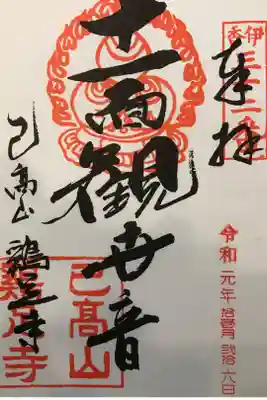 奉拝
十一面観世音
己高山 鶏足寺
令和元年拾壱月弐拾六日
伊香三十三
己高山
鶏足寺